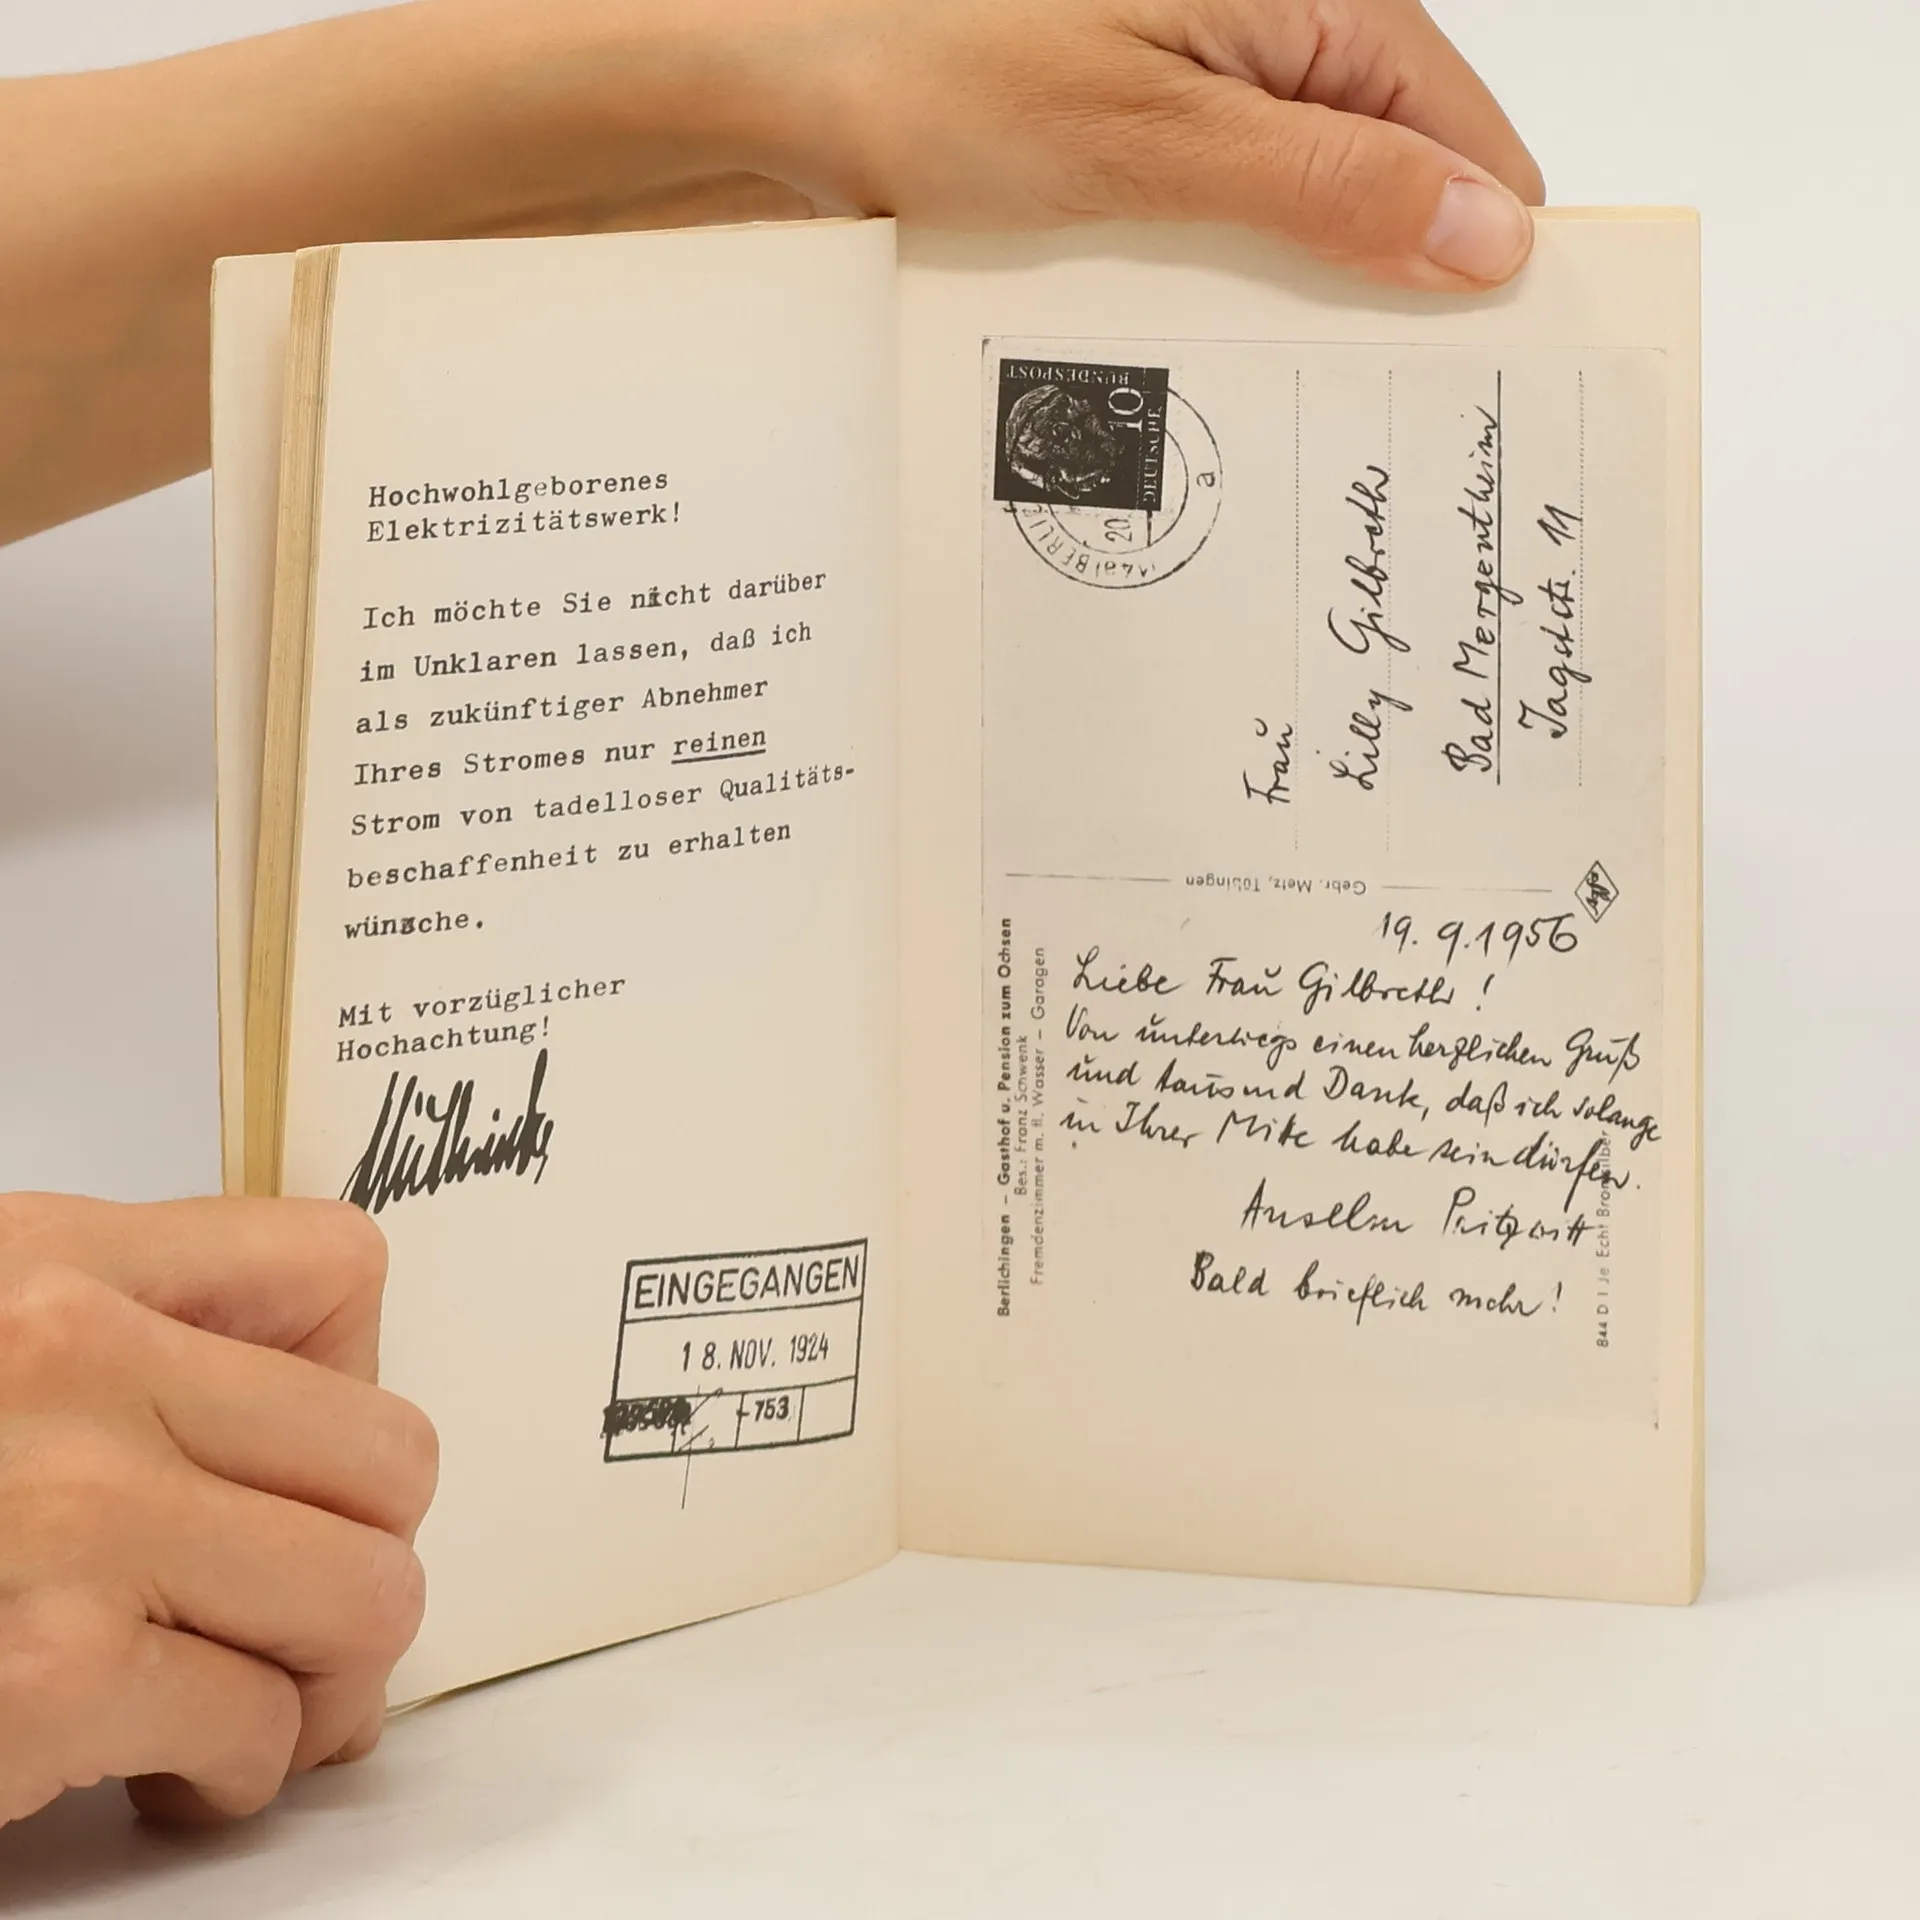 Hochwohlgeborenes
Elektrizitätswerk!
Ich möchte Sie nicht darüber
im Unklaren lassen, daß ich
als zukünftiger Abnehmer
Ihres Stromes nur reinen
Strom von tadelloser Qualitäts-
beschaffenheit zu erhalten
wünsche.
Mit vorzüglicher
Hochachtung!
EINGEGANGEN
18. NOV. 1924
-753
DEUTSCHE
BUNDESPOST
10
BERLI
20.
a
Frau
Lilly Gilbreth
Bad Mergentheim
Jagststr. 11
Gebr. Metz, Tübingen
Berlichingen – Gasthof u. Pension zum Ochsen
Bes.: Franz Schwenk
Fremdenzimmer m. fl. Wasser – Garagen
19. 9. 1956
Liebe Frau Gilbreth!
Von unterwegs einen herzlichen Gruß
und tausend Dank, daß ich solange
in Ihrer Mitte habe sein dürfen.
Anselm Pritzwitt
Bald brieflich mehr!
844 D I Je Echt Bromsilber